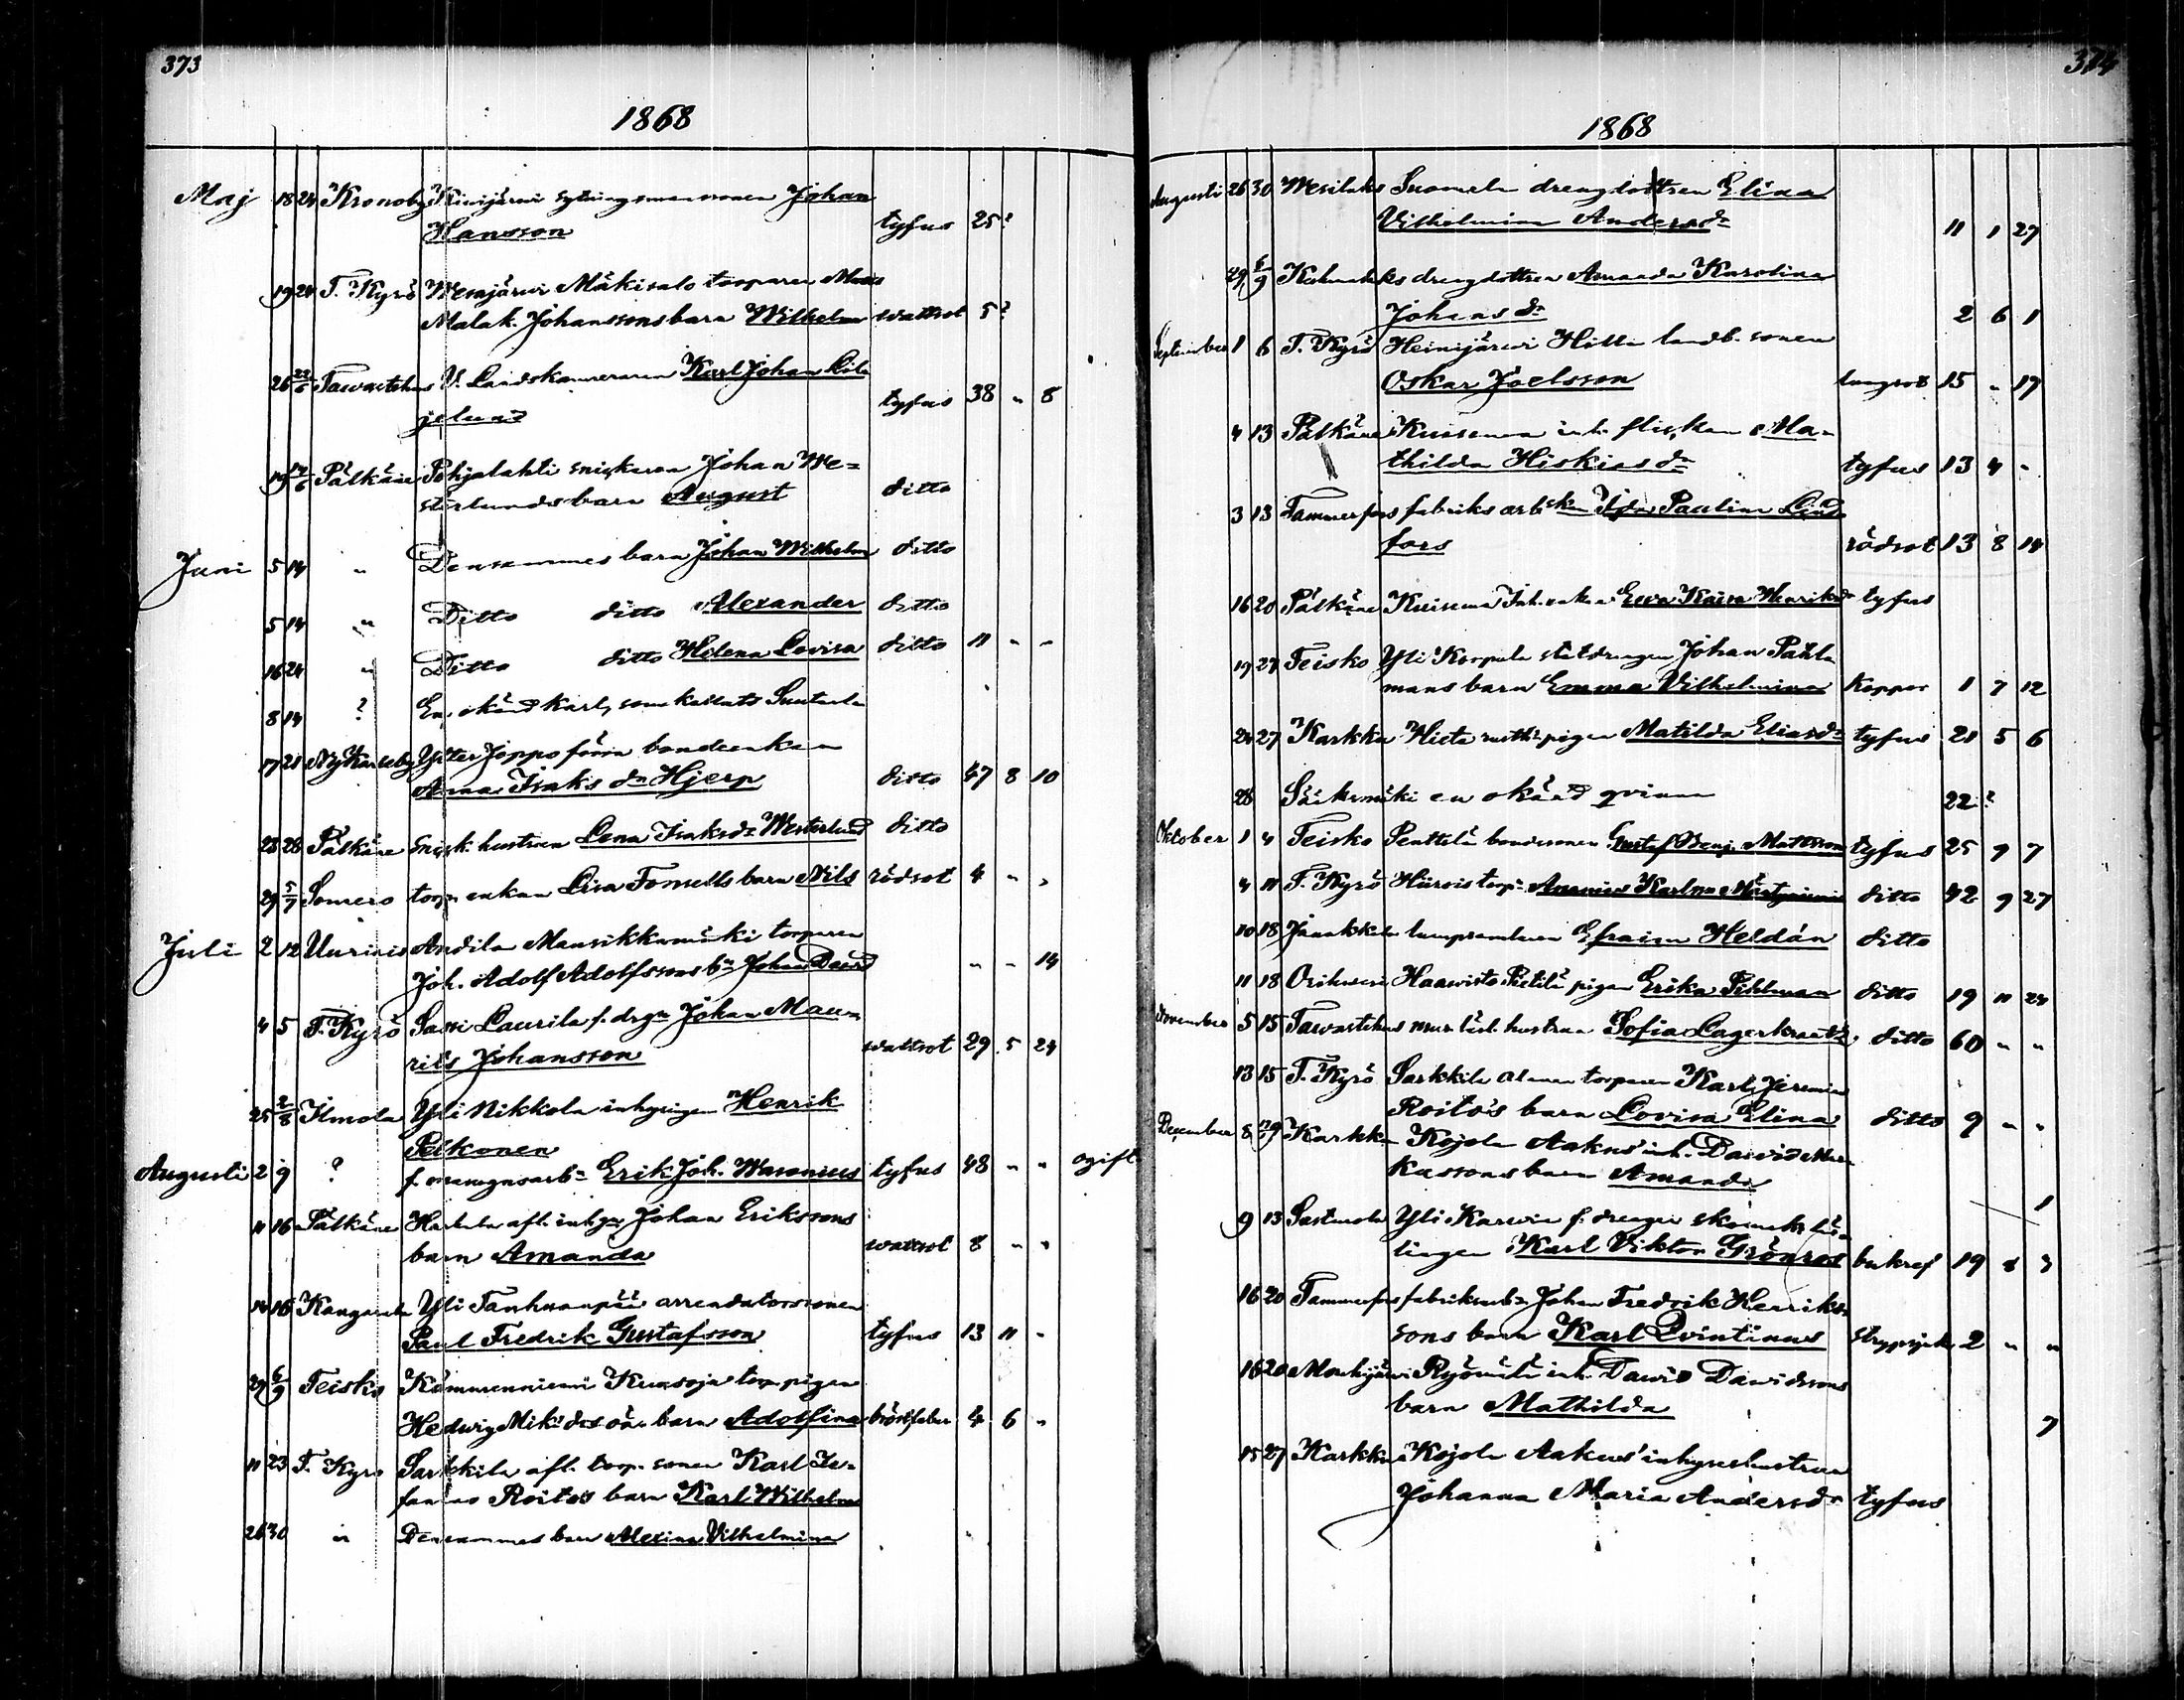 373
1868
Maj 18 24 Kronoby Kinijärvi sytningsmanssonen Johan
Hansson tyfus 25?
19 24 T. Kyrö Wesajärvi Mäkisalo torparen Matts
Malak. Johanssons barn Wilhelm wattsot 5?
26 Tawastehus V. Landskamreraren Karl Johan Lil-
jelund tyfus 38 " 8
19 14/6 Pälkäne Pohjalahti snickaren Johan We-
sterlunds barn August ditto
Juni 5 14 " Densammes barn Johan Wilhelm ditto
5 14 " Ditto ditto Alexander ditto
16 24 " Ditto ditto Helena Lovisa ditto 11 - -
8 14 ? En okänd karl, som kallats Suutarla
17 21 Ny Karleby Ytter Jeppo förra bondeenkan
Anna Isaks dr Hjerp ditto 47 8 10
23 28 Pälkäne snick. hustrun Lena Isaksdr Westerlund ditto
29 5/7 Somero torp. enkan Lisa Fonsells barn Nils rödsot 4 " "
Juli 2 12 Urais Andila Mansikkamäki torparen
Joh. Adolf Adolfssons bn Johan David " - 14
4 5 T. Kyrö Sassi Laurila f. drgn Johan Mau-
rits Johansson wattsot 29 5 24
25 2/8 Ilmola Yli Nikkola inhysingen Henrik
Pelkonen
Augusti 2 9 ? f. Erik Joh. Waronius tyfus 48 " " ogift
11 16 Pälkäne afl. inhgn Johan Erikssons
barn Amanda wattsot 8 " "
14 16 Kangasala Yli Tanhuanpää arrendatorssonen
Paul Fredrik Gustafsson tyfus 13 11 -
29 6/9 Teisko Kämmenniemi Kunsoja torp. pigan
Hedwig Mik. dr oä. barn Adolfina bröstfeber 4 6 "
11 23 T. Kyrö Sarkkila afl. torp. sonen Karl Je-
Roito's barn Karl Wilhelm
26 30 " Densammes barn Alexina Vilhelmina
374
1868
Augusti 26 30 Wesilaks Suomela drengdottren Elina
Vilhelmina Andersdr 11 1 27
29 6/9 Kulmalaks drengdottren Amanda Karolina
Johansdr 2 6 1
September 1 6 T. Kyrö Heinijärvi Hilla landb. sonen
Oskar Joelsson lungsot 15 " 17
4 13 Pälkäne Kuisema inh. flickan Ma-
thilda Hiskiasdr tyfus 13 4 -
3 13 Tammerfors fabriks arb.skn Ida Paulina Lind-
fors rödsot 13 8 14
16 20 Pälkäne Kuisema Inh. enkan Ewa Kaisa Henriksdr tyfus
19 27 Teisko Yli Korpula statdrengen Johan Påhl-
mans barn Emma Vilhelmina Koppor 1 7 12
24 27 Karkku Hieta rusth. pigan Matilda Eliasdr tyfus 21 5 6
28 Sääksmäki en okänd qvinna 22?
Oktober 1 4 Teisko Penttilä bondesonen Gustaf Benj. Mattsson tyfus 25 9 7
4 11 T. Kyrö torpn Ananias Karlsson ditto 42 9 27
10 18 Janakkala lumpsamlaren Efraim Heldán ditto
11 18 Orihvesi Haavisto Pietilä pigan Erika Pihlman ditto 19 11 24
November 5 15 Tawastehus hustrun Sofia Lagerkrantz ditto 60 " "
13 15 T. Kyrö Sarkkila torparen Karl Jeremias
Roito's barn Lovisa Elina ditto 9 " "
December 8 Karkku Kojola Aakus inh. David Mar-
kussons barn Amanda 1
9 13 Sastmola Yli Karwia f. drengen skomak. lär-
lingen Karl Viktor Grönros bukref 19 8 3
16 20 Tammerfors fabriksarbn Johan Fredrik Henriks-
sons barn Karl Qvintinus strypsjuk 2 " "
16 20 Mouhijärvi Ryömälä inh. David Davidssons
barn Mathilda 7
15 27 Karkku Kojola Aakus inhyseshustrun
Johanna Maria Andersdr tyfus